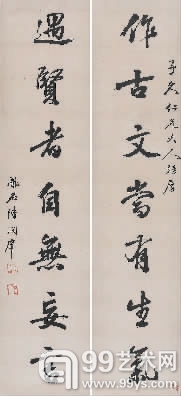 仁兄大人法屬
作古文當有生氣
遇賢者自無妄言
鳳石陸潤庠
99艺术网
www.99ys.com